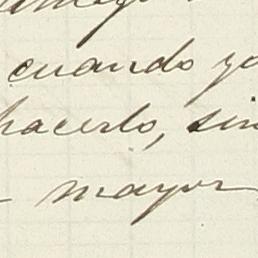 cuando yo
hacerlo, sin
mayor